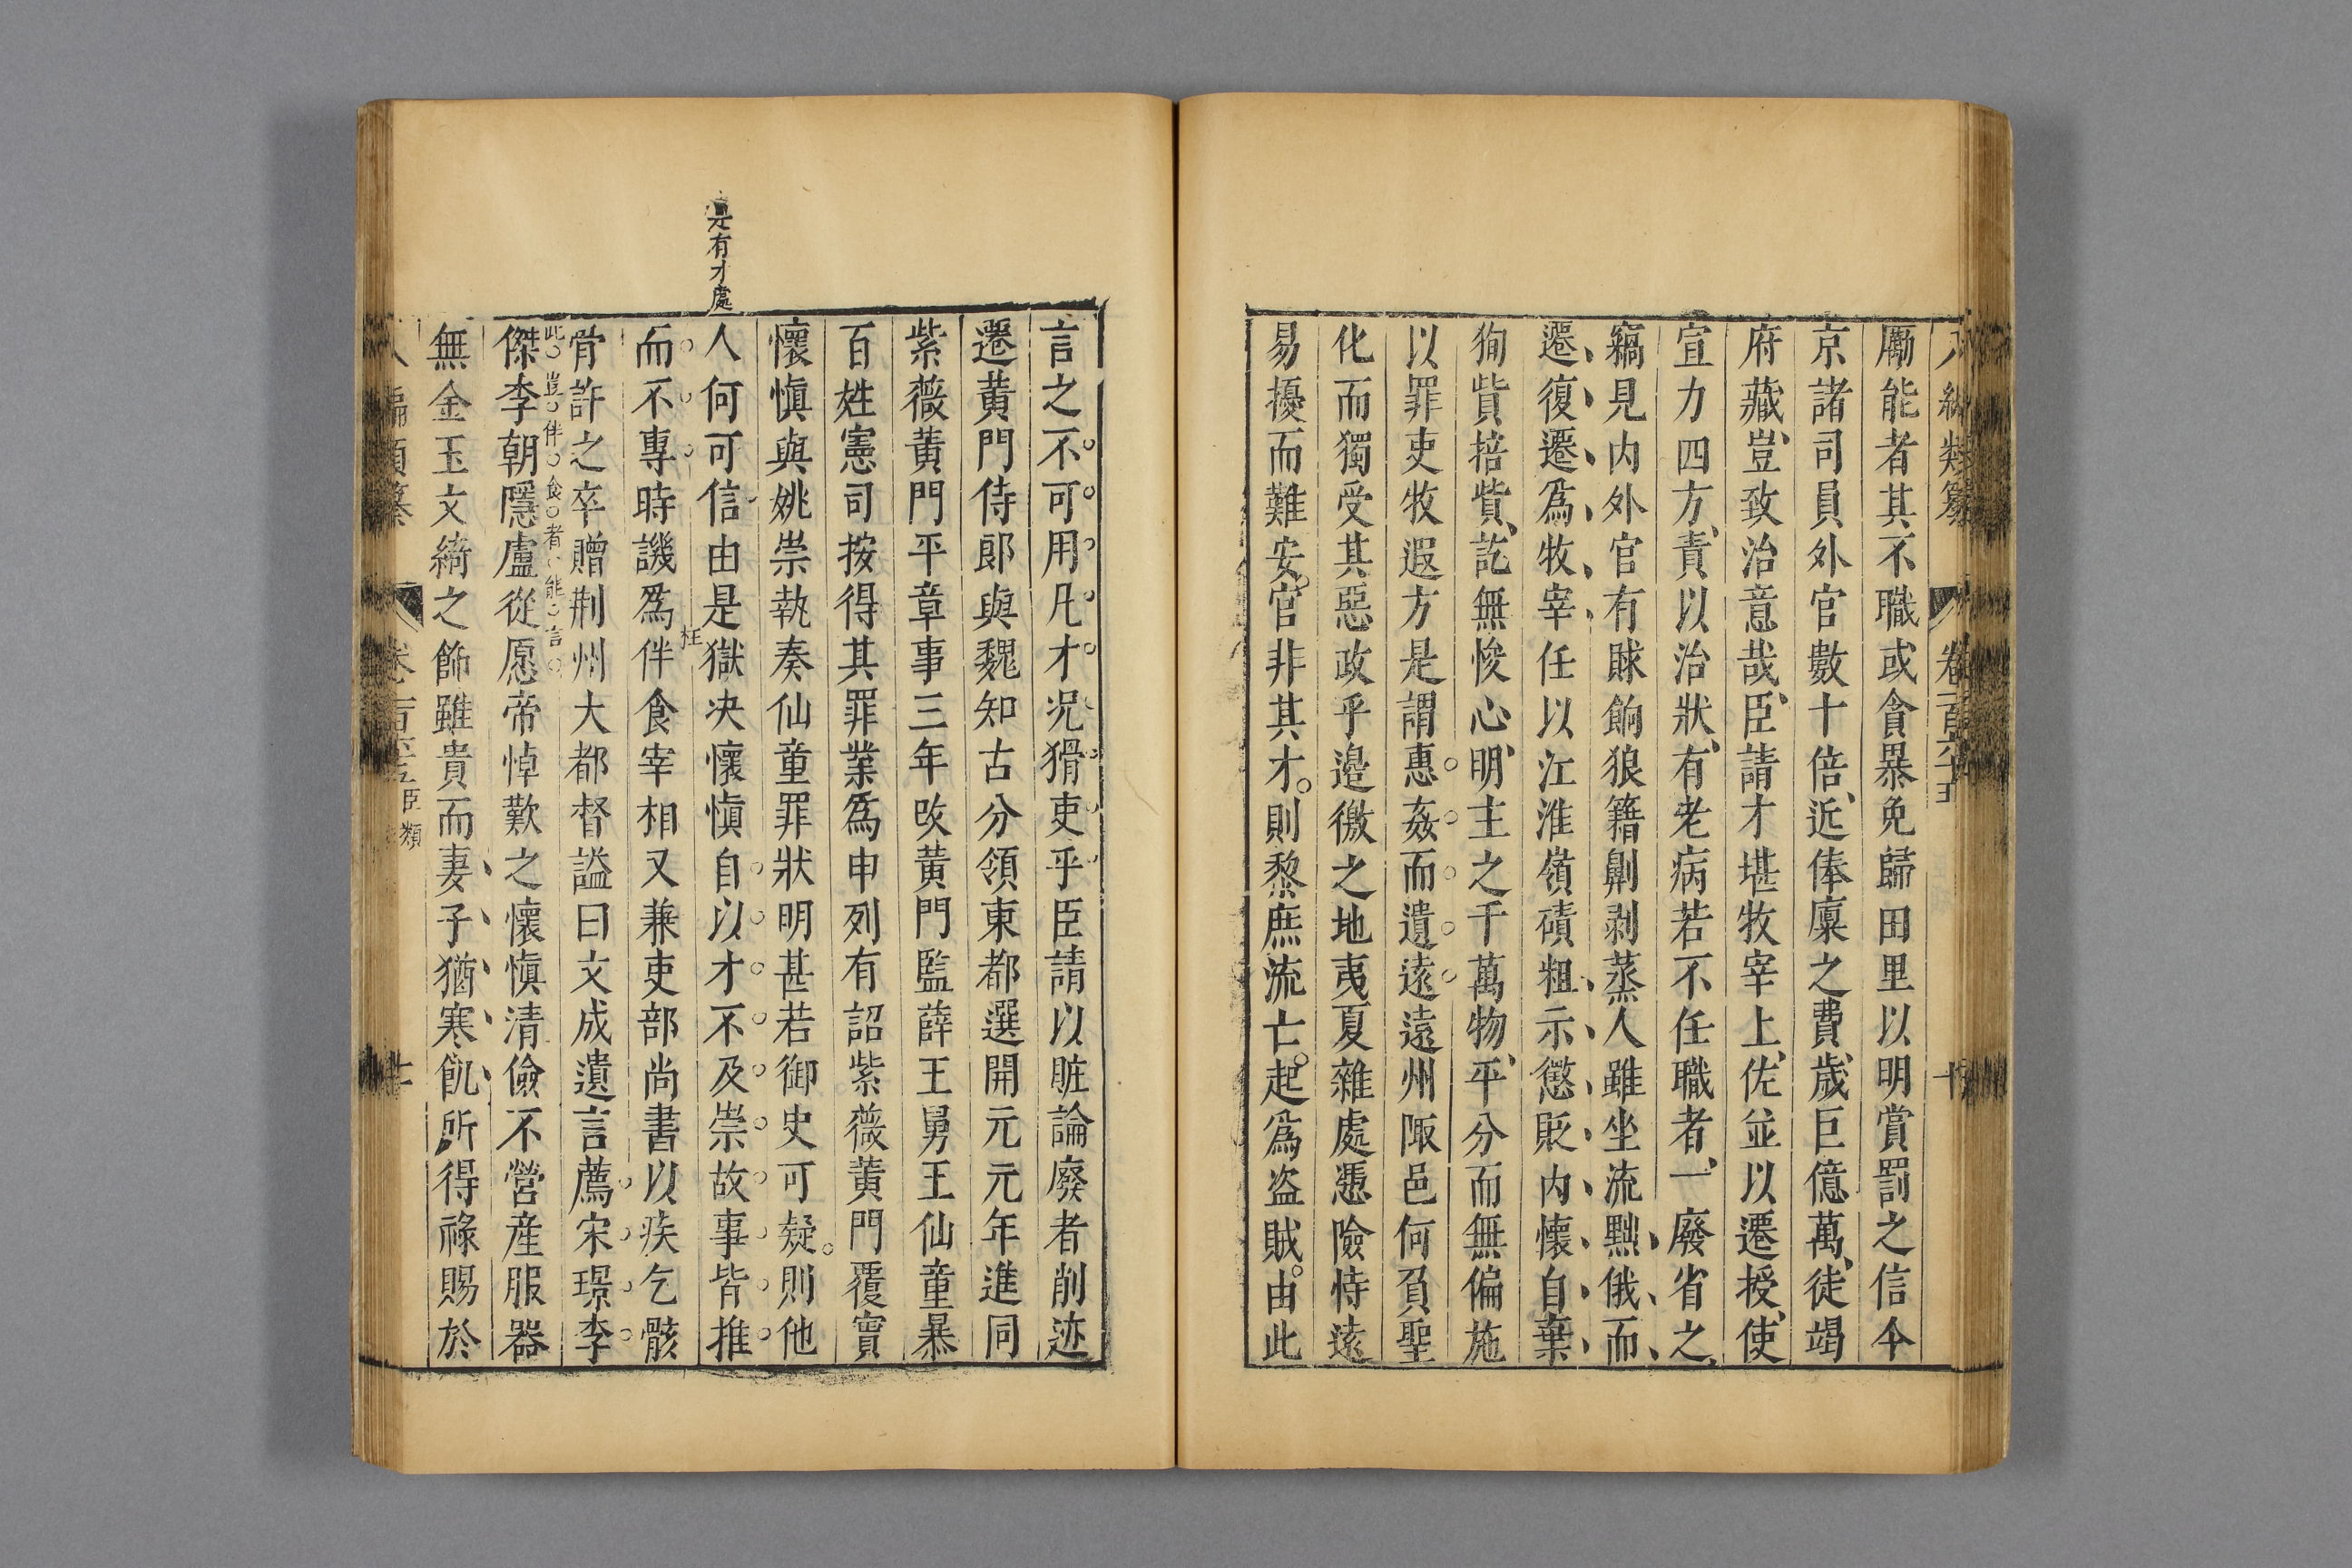 八編類纂 卷一百六十五 十
勵能者其不職或貪暴免歸田里以明賞罰之信今
京諸司員外官數十倍近俸廩之費歲巨億萬徒竭
府藏豈致治意哉臣請才堪牧宰上佐並以遷授使
宣力四方責以治狀有老病若不任職者一廢省之
竊見内外官有賕餉狼籍劓剥蒸人雖坐流黜俄而
遷復遷爲牧宰任以江淮嶺磧粗示懲貶内懷自棄
狥貲掊貲訖無悛心明主之于萬物平分而無偏施
以罪吏牧遐方是謂惠姦而遺遠遠州陬邑何負聖
化而獨受其惡政乎邉徼之地夷夏雜處憑險恃遠
易擾而難安官非其才則黎庶流亡起爲盗賊由此
言之不可用凡才况猾吏乎臣請以賍論廢者削迹
遷黄門侍郎與魏知古分領東都選開元元年進同
紫薇黄門平章事三年改黄門監薛王舅王仙童暴
百姓憲司按得其罪業爲申列有詔紫薇黄門覆實
懷愼與姚崇執奏仙童罪狀明甚若御史可疑則他
是有才處
人何可信由是獄决懷愼自以才不及崇故事皆推
枉
而不專時譏爲伴食宰相又兼吏部尚書以疾乞骸
骨許之卒贈荆州大都督謚曰文成遺言薦宋璟李
此豈伴食者能言
傑李朝隱盧從愿帝悼歎之懷愼清儉不營産服器
無金玉文綺之飾雖貴而妻子猶寒飢所得祿賜於
編類纂 臣類